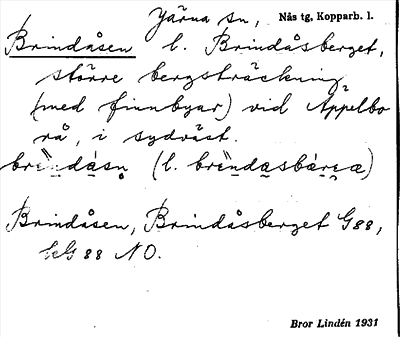 Järna sn, Nås tg, Kopparb. l.
Brindåsen l. Brindåsberget,
större bergsträckning
(med finnbyar) vid Äppelbo
rå, i sydväst.
brèndåsn̥ (l. brèndåsbærɛæ)
Brindåsen, Brindåsberget G88,
88 NO.
Bror Lindén 1931